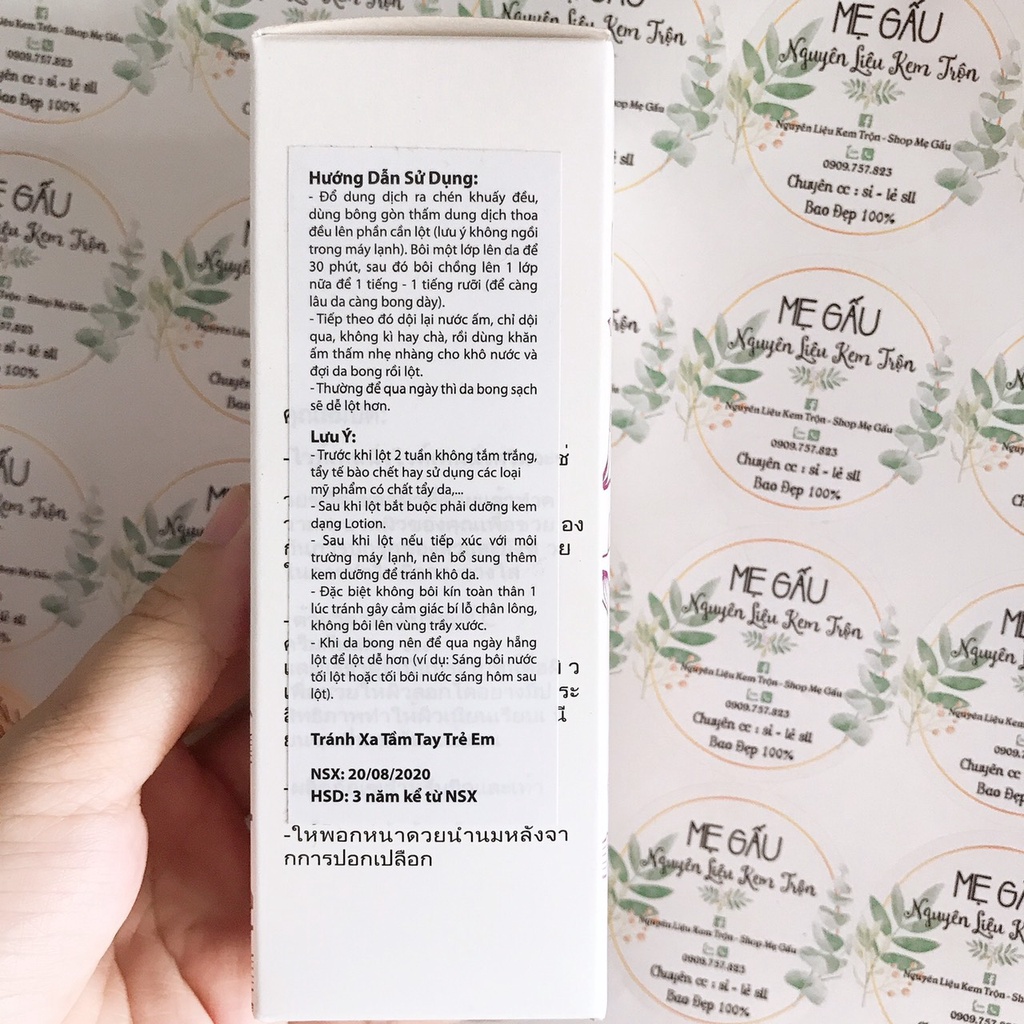 Hướng Dẫn Sử Dụng:
- Đổ dung dịch ra chén khuấy đều,
dùng bông gòn thấm dung dịch thoa
đều lên phần cần lột (lưu ý không ngồi
trong máy lạnh). Bôi một lớp lên da để
30 phút, sau đó bôi chồng lên 1 lớp
nữa để 1 tiếng - 1 tiếng rưỡi (để càng
lâu da càng bong dày).
- Tiếp theo đó dội lại nước ấm, chỉ dội
qua, không kì hay chà, rồi dùng khăn
ấm thấm nhẹ nhàng cho khô nước và
đợi da bong rồi lột.
- Thường để qua ngày thì da bong sạch
sẽ dễ lột hơn.
Lưu Ý:
- Trước khi lột 2 tuần không tắm trắng,
tẩy tế bào chết hay sử dụng các loại
mỹ phẩm có chất tẩy da,...
- Sau khi lột bắt buộc phải dưỡng kem
dạng Lotion.
- Sau khi lột nếu tiếp xúc với môi
trường máy lạnh, nên bổ sung thêm
kem dưỡng để tránh khô da.
- Đặc biệt không bôi kín toàn thân 1
lúc tránh gây cảm giác bí lỗ chân lông,
không bôi lên vùng trầy xước.
- Khi da bong nên để qua ngày hẵng
lột để lột dễ hơn (ví dụ: Sáng bôi nước
tối lột hoặc tối bôi nước sáng hôm sau
lột).
Tránh Xa Tầm Tay Trẻ Em
NSX: 20/08/2020
HSD: 3 năm kể từ NSX
-ให้พอกหนาด้วยน้ำนมหลังจา
กการปอกเปลือก
MẸ GẤU
Nguyên Liệu Kem Trộn
Nguyên Liệu Kem Trộn - Shop Mẹ Gấu
0909.757.823
Chuyên cc : sỉ - lẻ sll
Bao Đẹp 100%
MẸ GẤU
Nguyên Liệu Kem Trộn
Nguyên Liệu Kem Trộn - Shop Mẹ Gấu
0909.757.823
Chuyên cc : sỉ - lẻ sll
Bao Đẹp 100%
MẸ GẤU
Nguyên Liệu Kem Trộn
Nguyên Liệu Kem Trộn - Shop Mẹ Gấu
0909.757.823
Chuyên cc : sỉ - lẻ sll
Bao Đẹp 100%
MẸ GẤU
Nguyên Liệu Kem Trộn
Nguyên Liệu Kem Trộn - Shop Mẹ Gấu
0909.757.823
Chuyên cc : sỉ - lẻ sll
Bao Đẹp 100%